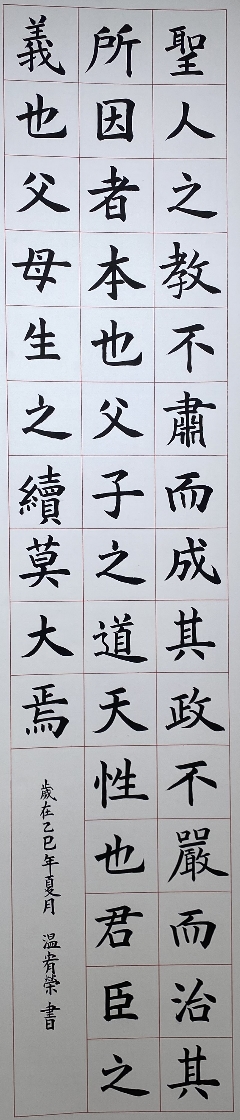 聖人之教不肅而成其政不嚴而治其
所因者本也父子之道天性也君臣之
義也父母生之續莫大焉
歲在乙巳年夏月 溫肯榮書